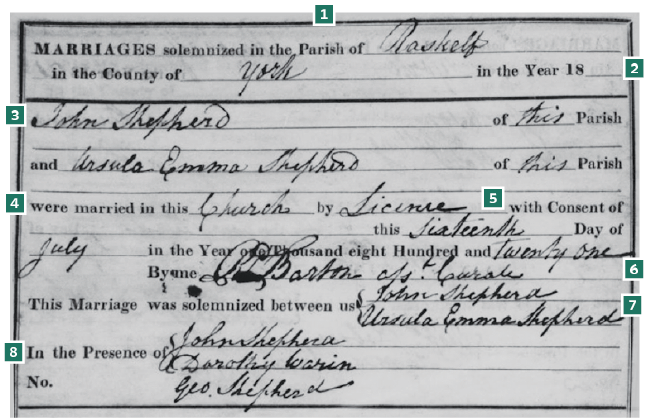 1
MARRIAGES solemnized in the Parish of Raskelf
in the County of York in the Year 18 2
3 John Shepherd of this Parish
and Ursula Emma Shepherd of this Parish
4 were married in this Church by Licence 5 with Consent of
this sixteenth Day of
July in the Year one Thousand eight Hundred and twenty one
By me Barton asst. Curate 6
This Marriage was solemnized between us John Shepherd
Ursula Emma Shepherd 7
8 In the Presence of John Shepherd
Dorothy Warin
No. Geo. Shepherd